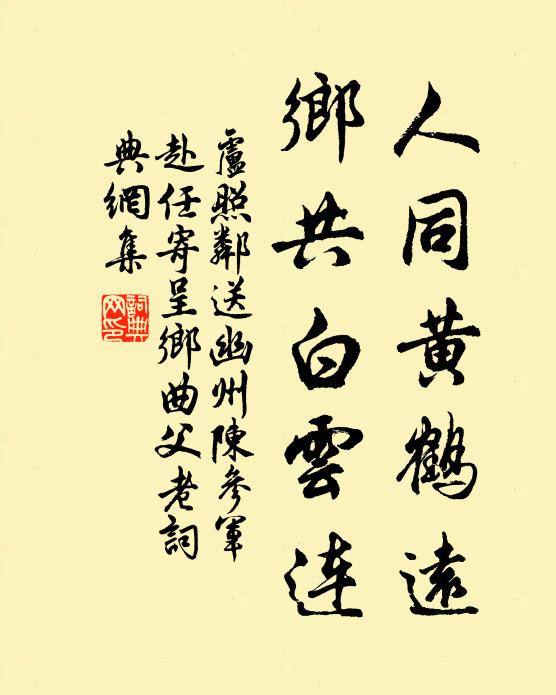 人同黄鹤遠
鄉共白雲連
盧照鄰送幽州陳參軍
赴任寄呈鄉曲父老詞
典網集
詞典
网印